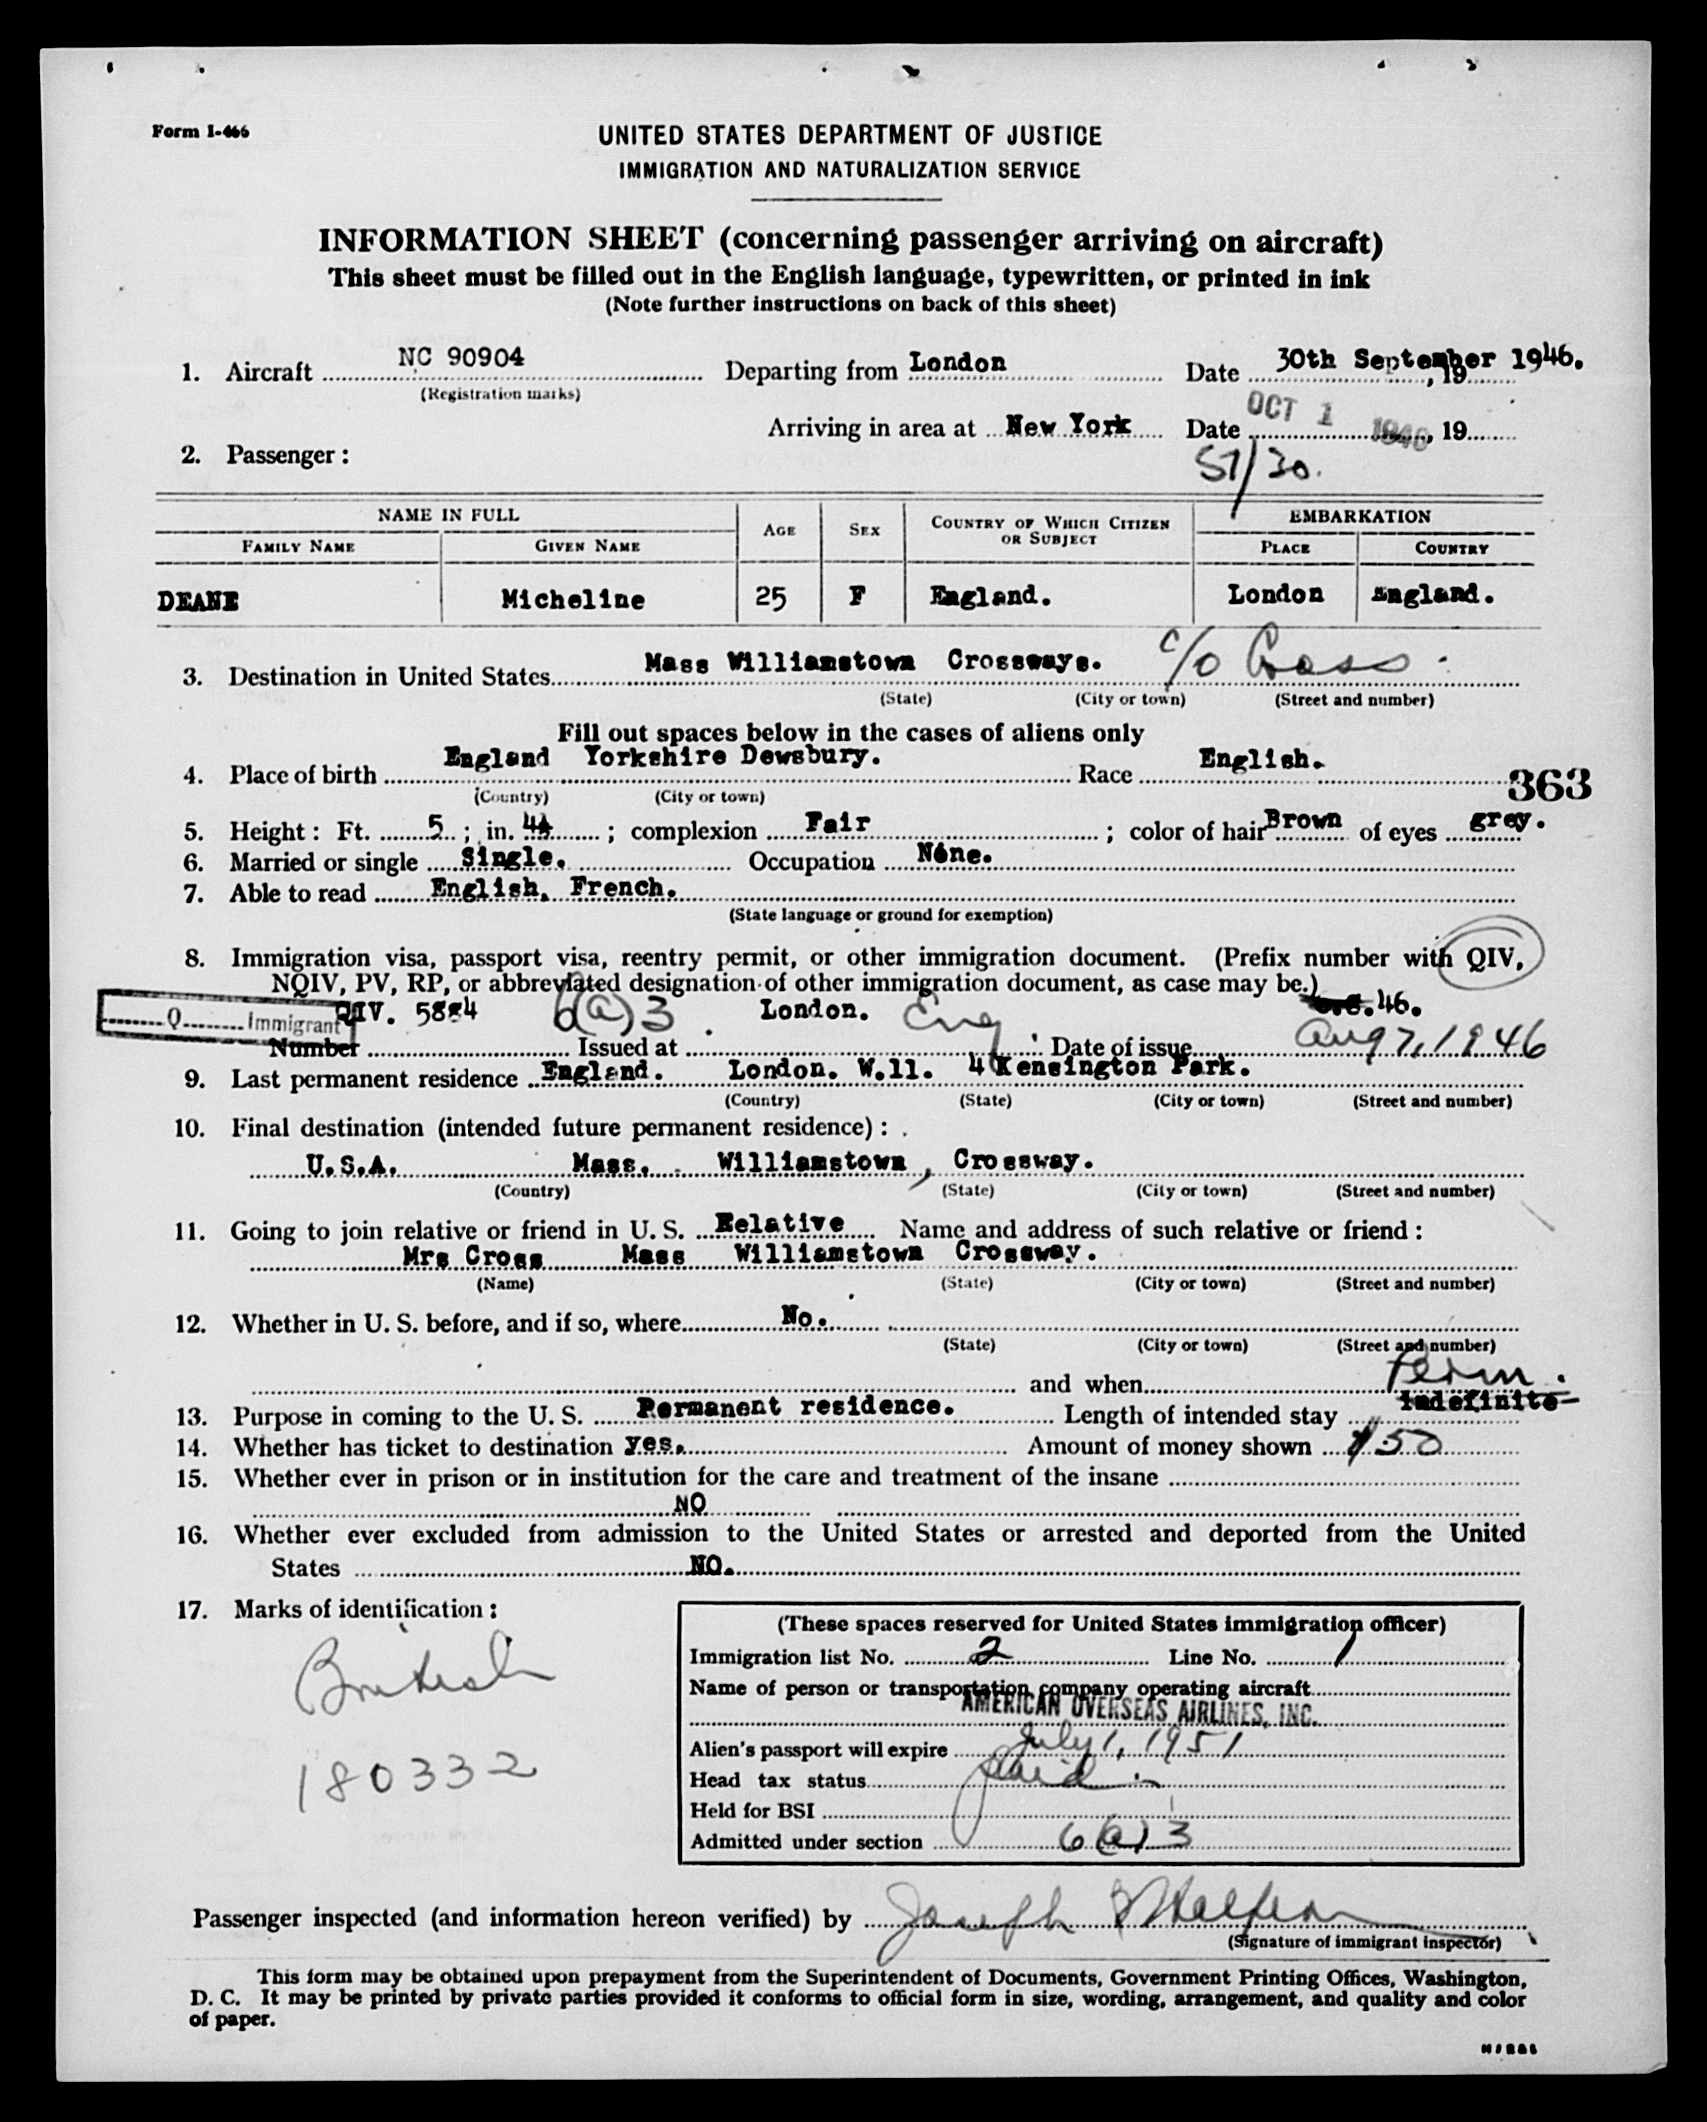 Form I-466
UNITED STATES DEPARTMENT OF JUSTICE
IMMIGRATION AND NATURALIZATION SERVICE
INFORMATION SHEET (concerning passenger arriving on aircraft)
This sheet must be filled out in the English language, typewritten, or printed in ink
(Note further instructions on back of this sheet)
1. Aircraft NC 90904 Departing from London Date 30th September 1946. , 19
(Registration marks)
Arriving in area at New York Date OCT 1 1946 , 19
2. Passenger: 57/30.
NAME IN FULL AGE SEX COUNTRY OF WHICH CITIZEN OR SUBJECT EMBARKATION
FAMILY NAME GIVEN NAME PLACE COUNTRY
DEANE Micheline 25 F England. London England.
3. Destination in United States Mass Williamstown Crossways. c/o Cross.
(State) (City or town) (Street and number)
Fill out spaces below in the cases of aliens only
4. Place of birth England Yorkshire Dewsbury. Race English.
363
(Country) (City or town)
5. Height: Ft. 5 ; in. 4½ ; complexion Fair ; color of hair Brown of eyes grey.
6. Married or single Single. Occupation None.
7. Able to read English. French.
(State language or ground for exemption)
8. Immigration visa, passport visa, reentry permit, or other immigration document. (Prefix number with QIV,
NQIV, PV, RP, or abbreviated designation of other immigration document, as case may be.)
Q Immigrant QIV. 5884 6(a)3. London. Eng 46.
Number Issued at Date of issue Aug 7, 1946
9. Last permanent residence England. London. W.11. 4 Kensington Park.
(Country) (State) (City or town) (Street and number)
10. Final destination (intended future permanent residence):
U.S.A. Mass. Williamstown, Crossway.
(Country) (State) (City or town) (Street and number)
11. Going to join relative or friend in U. S. Relative Name and address of such relative or friend:
Mrs Cross Mass Williamstown Crossway.
(Name) (State) (City or town) (Street and number)
12. Whether in U. S. before, and if so, where No.
(State) (City or town) (Street and number)
and when
Perm.
13. Purpose in coming to the U. S. Permanent residence. Length of intended stay indefinite
14. Whether has ticket to destination yes. Amount of money shown $50
15. Whether ever in prison or in institution for the care and treatment of the insane
NO
16. Whether ever excluded from admission to the United States or arrested and deported from the United
States NO.
17. Marks of identification:
British
180332
(These spaces reserved for United States immigration officer)
Immigration list No. 2 Line No. 1
Name of person or transportation company operating aircraft
AMERICAN OVERSEAS AIRLINES, INC.
Alien's passport will expire July 1, 1951
Head tax status paid.
Held for BSI
Admitted under section 6(a)3
Passenger inspected (and information hereon verified) by Joseph
(Signature of immigrant inspector)
This form may be obtained upon prepayment from the Superintendent of Documents, Government Printing Offices, Washington,
D. C. It may be printed by private parties provided it conforms to official form in size, wording, arrangement, and quality and color
of paper.